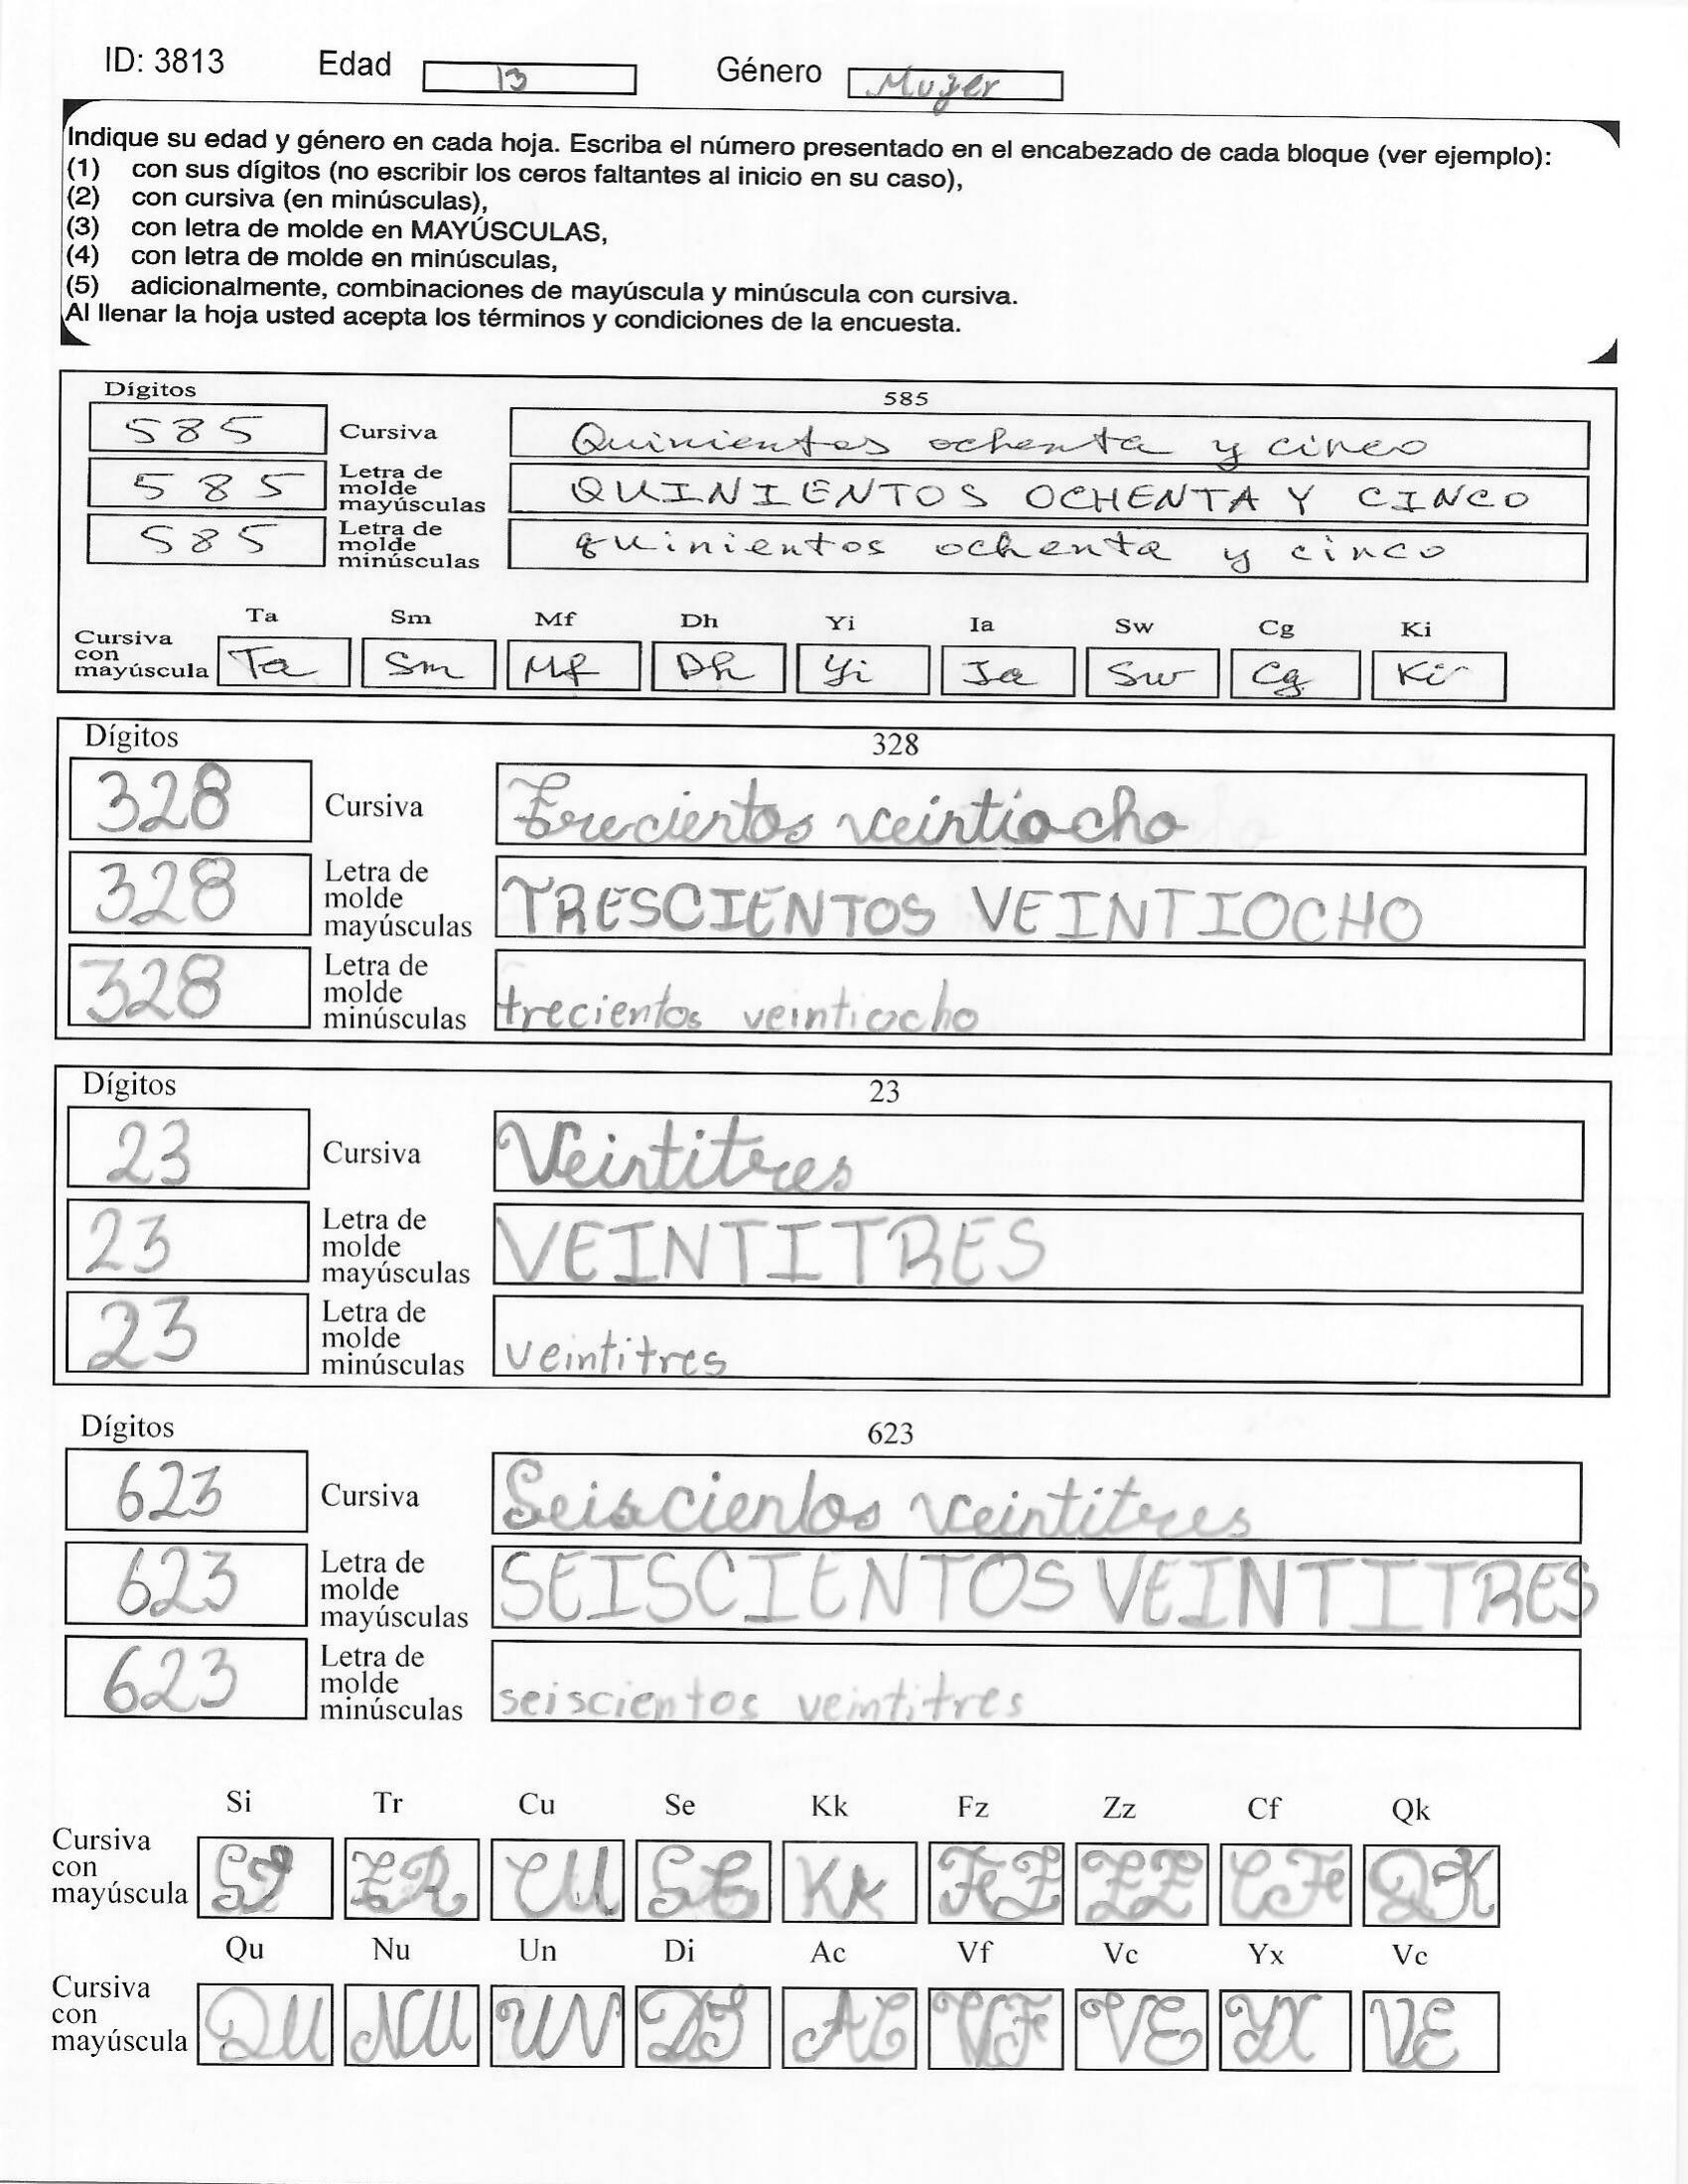 ID: 3813 Edad 13 Género Mujer
Indique su edad y género en cada hoja. Escriba el número presentado en el encabezado de cada bloque (ver ejemplo):
(1) con sus dígitos (no escribir los ceros faltantes al inicio en su caso),
(2) con cursiva (en minúsculas),
(3) con letra de molde en MAYÚSCULAS,
(4) con letra de molde en minúsculas,
(5) adicionalmente, combinaciones de mayúscula y minúscula con cursiva.
Al llenar la hoja usted acepta los términos y condiciones de la encuesta.
Dígitos 585
585 Cursiva Quinientos ochenta y cinco
585 Letra de molde mayúsculas QUINIENTOS OCHENTA Y CINCO
585 Letra de molde minúsculas quinientos ochenta y cinco
Ta Sm Mf Dh Yi Ia Sw Cg Ki
Cursiva con mayúscula Ta Sm Mf Dh Yi Ia Sw Cg Ki
Dígitos 328
328 Cursiva Trecientos veintiocho
328 Letra de molde mayúsculas TRESCIENTOS VEINTIOCHO
328 Letra de molde minúsculas trecientos veintiocho
Dígitos 23
23 Cursiva Veintitres
23 Letra de molde mayúsculas VEINTITRES
23 Letra de molde minúsculas veintitres
Dígitos 623
623 Cursiva Seiscientos veintitres
623 Letra de molde mayúsculas SEISCIENTOS VEINTITRES
623 Letra de molde minúsculas seiscientos veintitres
Si Tr Cu Se Kk Fz Zz Cf Qk
Cursiva con mayúscula SI TR CU SE Kk FZ ZZ CF QK
Qu Nu Un Di Ac Vf Vc Yx Vc
Cursiva con mayúscula QU NU UN DI AC VF VE YX VE